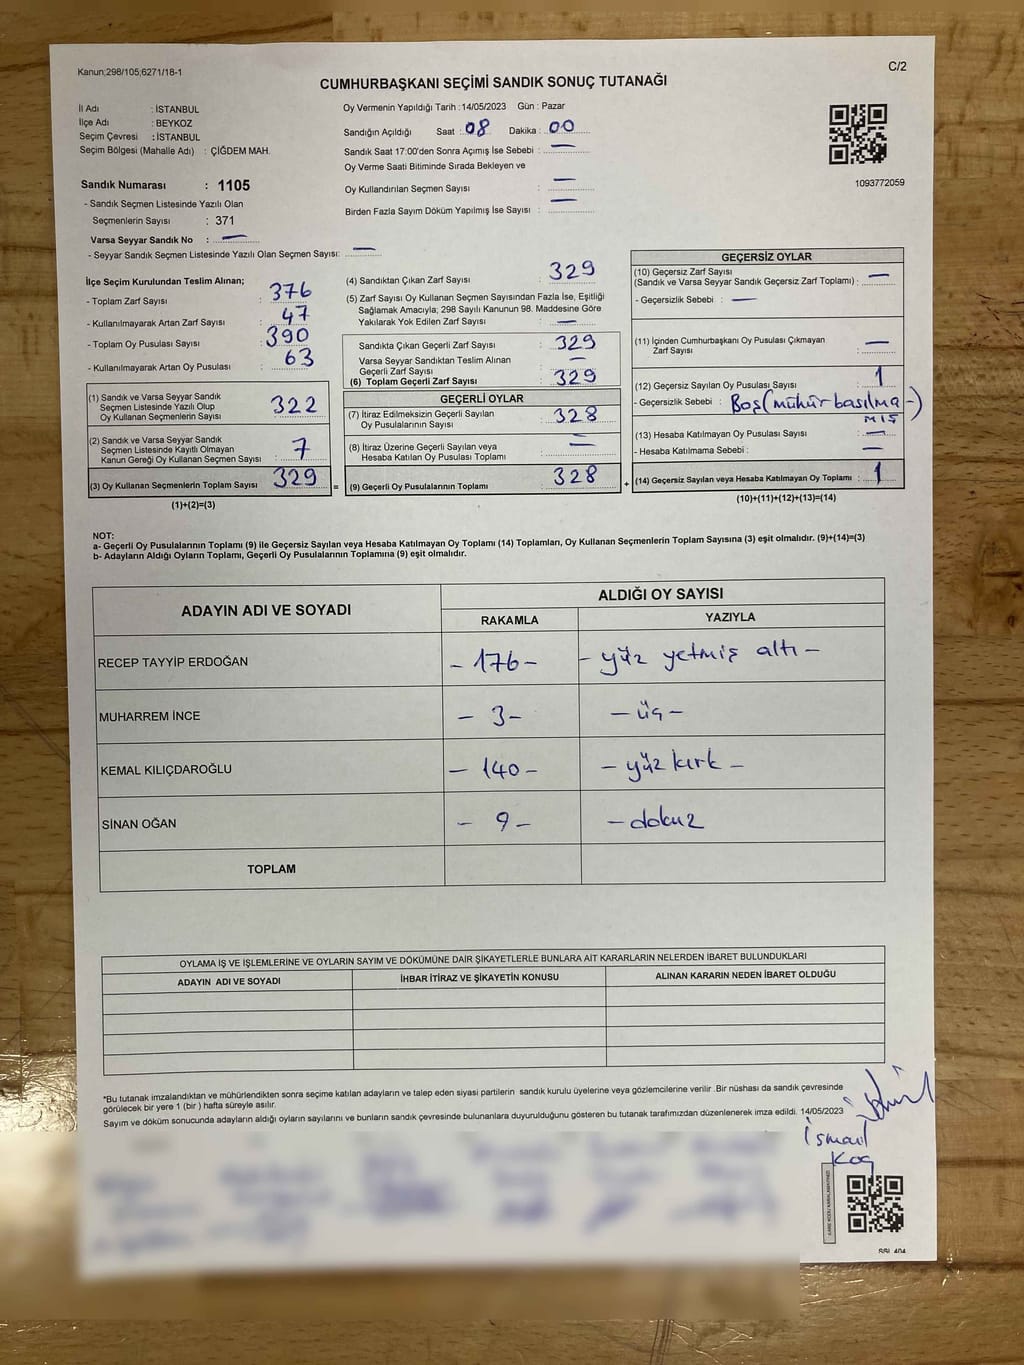 Kanun;298/105;6271/18-1
C/2
CUMHURBAŞKANI SEÇİMİ SANDIK SONUÇ TUTANAĞI
İl Adı : İSTANBUL
İlçe Adı : BEYKOZ
Seçim Çevresi : İSTANBUL
Seçim Bölgesi (Mahalle Adı) : ÇİĞDEM MAH.
Sandık Numarası : 1105
- Sandık Seçmen Listesinde Yazılı Olan
Seçmenlerin Sayısı : 371
Varsa Seyyar Sandık No : —
- Seyyar Sandık Seçmen Listesinde Yazılı Olan Seçmen Sayısı: —
Oy Vermenin Yapıldığı Tarih : 14/05/2023 Gün : Pazar
Sandığın Açıldığı Saat : 08 Dakika : 00
Sandık Saat 17:00'den Sonra Açımış İse Sebebi : —
Oy Verme Saati Bitiminde Sırada Bekleyen ve
Oy Kullandırılan Seçmen Sayısı : —
Birden Fazla Sayım Döküm Yapılmış İse Sayısı : —
1093772059
İlçe Seçim Kurulundan Teslim Alınan;
- Toplam Zarf Sayısı : 376
- Kullanılmayarak Artan Zarf Sayısı : 47
- Toplam Oy Pusulası Sayısı : 390
- Kullanılmayarak Artan Oy Pusulası : 63
(1) Sandık ve Varsa Seyyar Sandık
Seçmen Listesinde Yazılı Olup
Oy Kullanan Seçmenlerin Sayısı : 322
(2) Sandık ve Varsa Seyyar Sandık
Seçmen Listesinde Kayıtlı Olmayan
Kanun Gereği Oy Kullanan Seçmen Sayısı : 7
(3) Oy Kullanan Seçmenlerin Toplam Sayısı : 329 =
(1)+(2)=(3)
(4) Sandıktan Çıkan Zarf Sayısı : 329
(5) Zarf Sayısı Oy Kullanan Seçmen Sayısından Fazla İse, Eşitliği
Sağlamak Amacıyla; 298 Sayılı Kanunun 98. Maddesine Göre
Yakılarak Yok Edilen Zarf Sayısı : —
Sandıkta Çıkan Geçerli Zarf Sayısı : 329
Varsa Seyyar Sandıktan Teslim Alınan
Geçerli Zarf Sayısı : —
(6) Toplam Geçerli Zarf Sayısı : 329
GEÇERLİ OYLAR
(7) İtiraz Edilmeksizin Geçerli Sayılan
Oy Pusulalarının Sayısı : 328
(8) İtiraz Üzerine Geçerli Sayılan veya
Hesaba Katılan Oy Pusulası Toplamı : —
(9) Geçerli Oy Pusulalarının Toplamı : 328 +
GEÇERSİZ OYLAR
(10) Geçersiz Zarf Sayısı
(Sandık ve Varsa Seyyar Sandık Geçersiz Zarf Toplamı) : —
- Geçersizlik Sebebi : —
(11) İçinden Cumhurbaşkanı Oy Pusulası Çıkmayan
Zarf Sayısı : —
(12) Geçersiz Sayılan Oy Pusulası Sayısı : 1
- Geçersizlik Sebebi : Boş (mühür basılma-)
mış
(13) Hesaba Katılmayan Oy Pusulası Sayısı : —
- Hesaba Katılmama Sebebi : —
(14) Geçersiz Sayılan veya Hesaba Katılmayan Oy Toplamı : 1
(10)+(11)+(12)+(13)=(14)
NOT:
a- Geçerli Oy Pusulalarının Toplamı (9) ile Geçersiz Sayılan veya Hesaba Katılmayan Oy Toplamı (14) Toplamları, Oy Kullanan Seçmenlerin Toplam Sayısına (3) eşit olmalıdır. (9)+(14)=(3)
b- Adayların Aldığı Oyların Toplamı, Geçerli Oy Pusulalarının Toplamına (9) eşit olmalıdır.
ADAYIN ADI VE SOYADI
ALDIĞI OY SAYISI
RAKAMLA YAZIYLA
RECEP TAYYİP ERDOĞAN - 176 - - yüz yetmiş altı -
MUHARREM İNCE - 3 - - üç -
KEMAL KILIÇDAROĞLU - 140 - - yüz kırk -
SİNAN OĞAN - 9 - - dokuz
TOPLAM
OYLAMA İŞ VE İŞLEMLERİNE VE OYLARIN SAYIM VE DÖKÜMÜNE DAİR ŞİKAYETLERLE BUNLARA AİT KARARLARIN NELERDEN İBARET BULUNDUKLARI
ADAYIN ADI VE SOYADI İHBAR İTİRAZ VE ŞİKAYETİN KONUSU ALINAN KARARIN NEDEN İBARET OLDUĞU
*Bu tutanak imzalandıktan ve mühürlendikten sonra seçime katılan adayların ve talep eden siyasi partilerin sandık kurulu üyelerine veya gözlemcilerine verilir .Bir nüshası da sandık çevresinde
görülecek bir yere 1 (bir ) hafta süreyle asılır.
Sayım ve döküm sonucunda adayların aldığı oyların sayılarını ve bunların sandık çevresinde bulunanlara duyurulduğunu gösteren bu tutanak tarafımızdan düzenlenerek imza edildi. 14/05/2023
İsmail
Koç